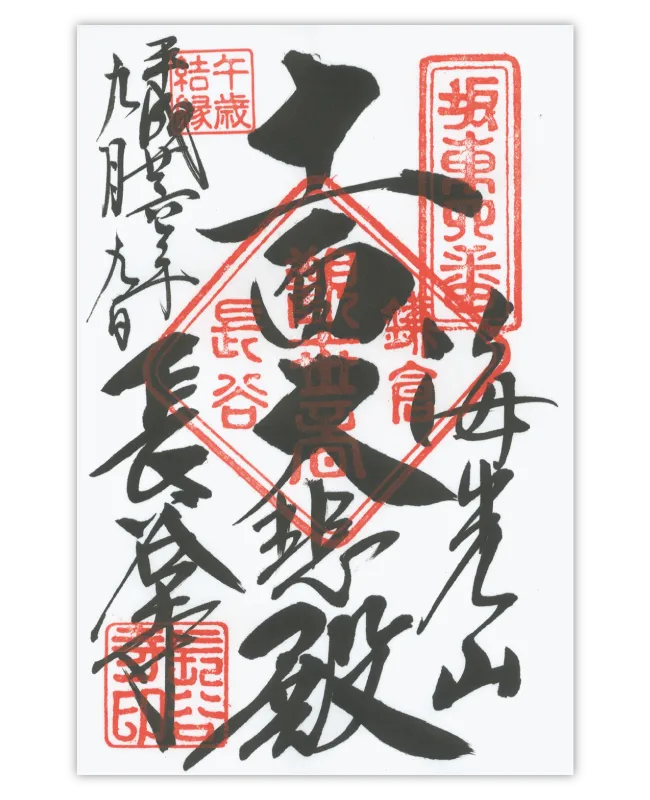 坂東四番
海光山
十一面大悲殿
鎌倉
觀世音
長谷
午歳
結縁
平成廿六年
九月九日
長谷寺
長谷
寺印